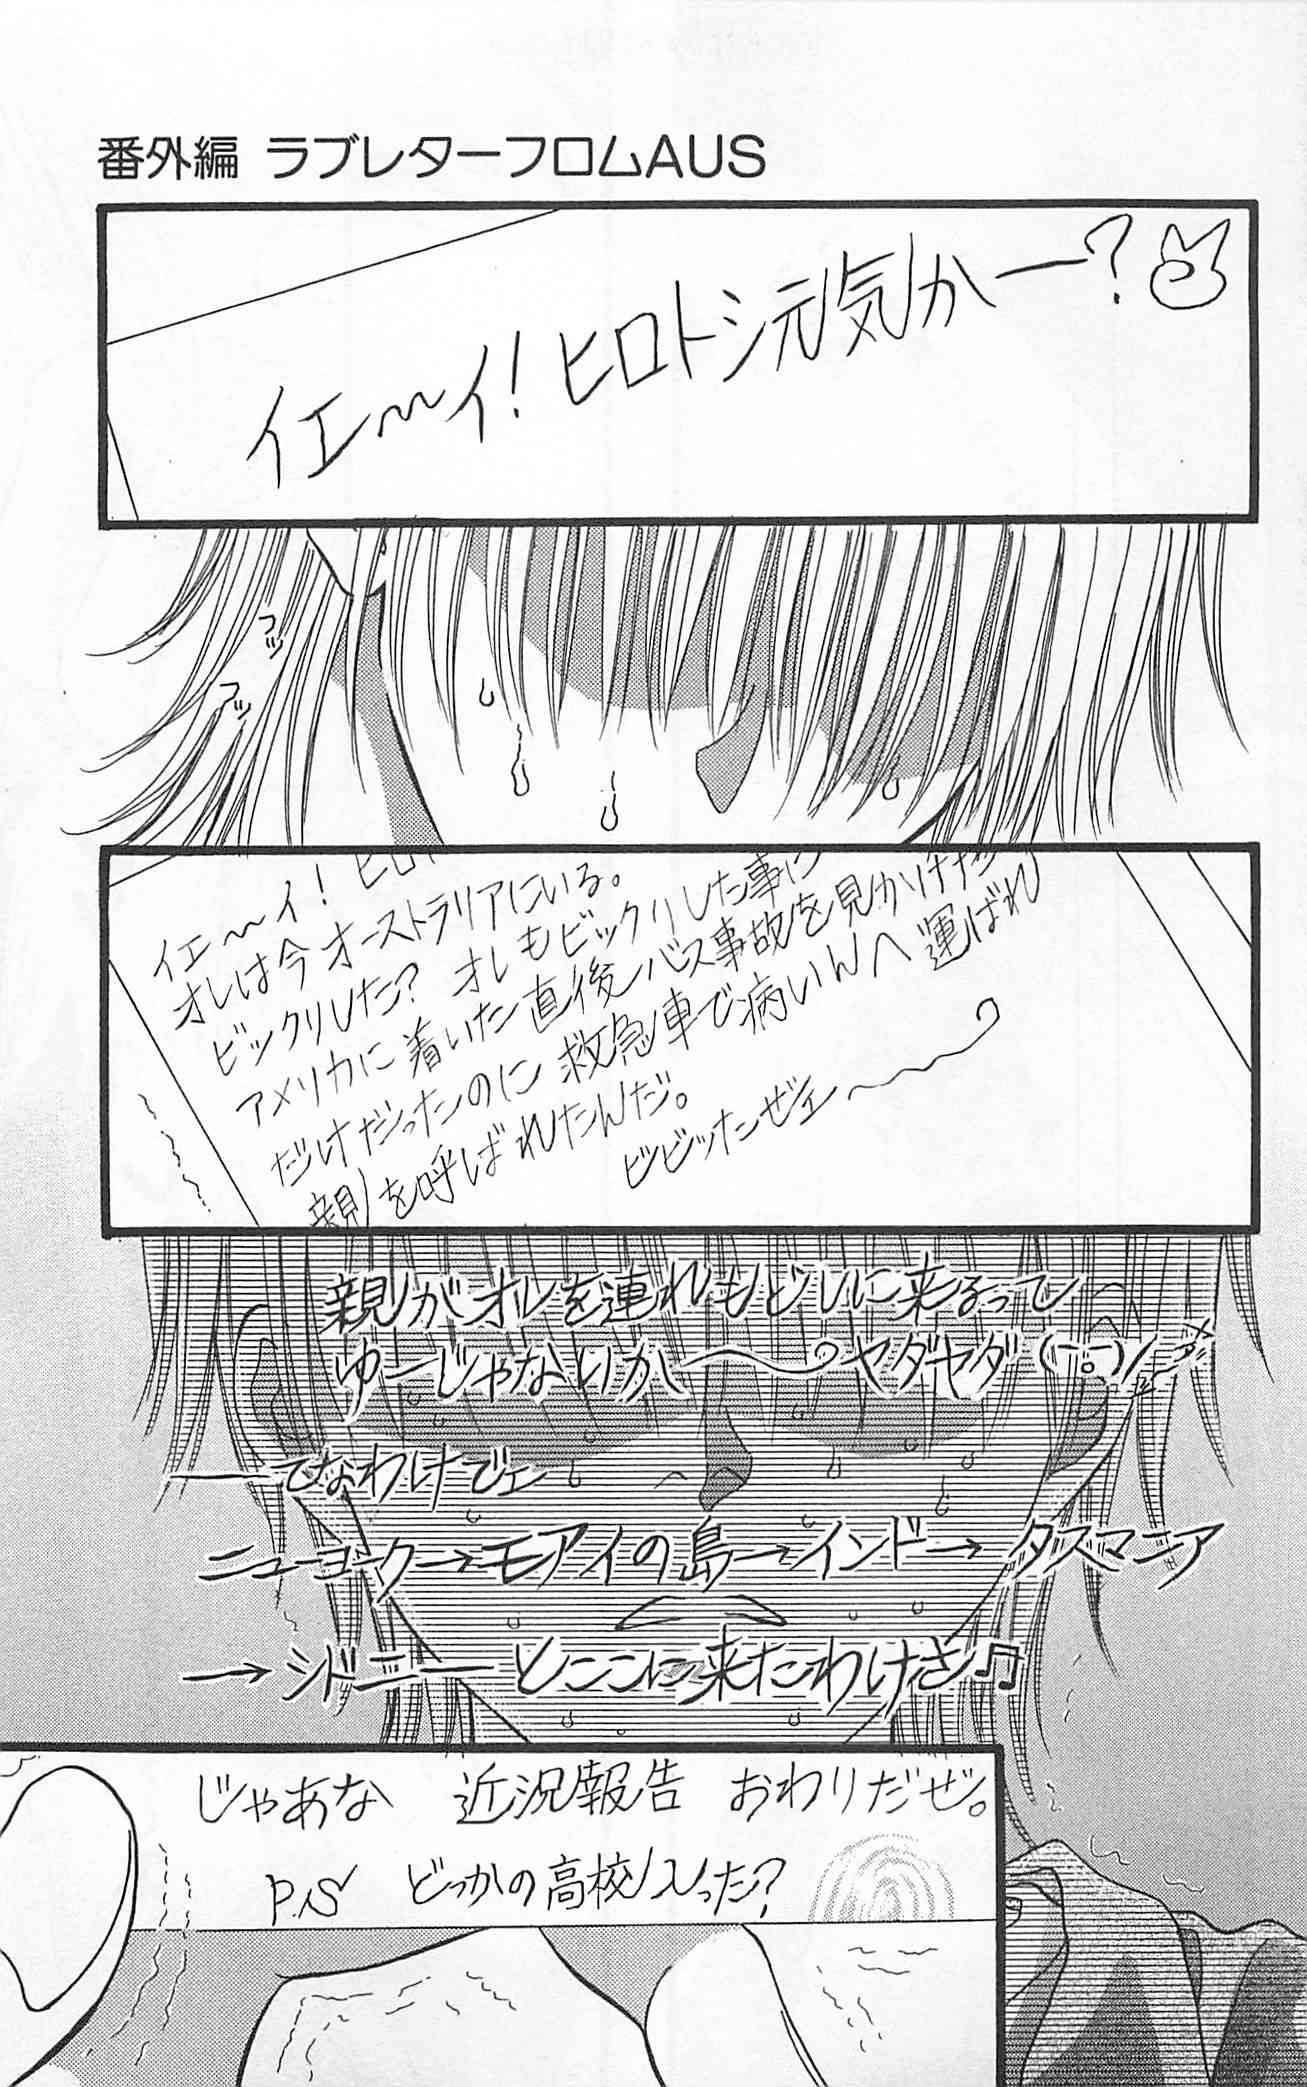 番外編 ラブレターフロムAUS
イエ〜イ!ヒロトシ元気かー?
フッ
フッ
イエ〜イ!ヒロ
オレは今オーストラリアにいる。
ビックリした?オレもビックリした事に
アメリカに着いた直後バス事故を見かけた
だけだったのに救急車で病いんへ運ばれ
親を呼ばれたんだ。
ビビッたぜェ〜
親がオレを連れもどしに来るって
ゆーじゃないか〜。ヤダヤダ
ーてなわけでェ
ニューヨーク→モアイの島→インド→タスマニア
→シドニーとここに来たわけさ♫
じゃあな 近況報告 おわりだぜ。
P.S どっかの高校入った?